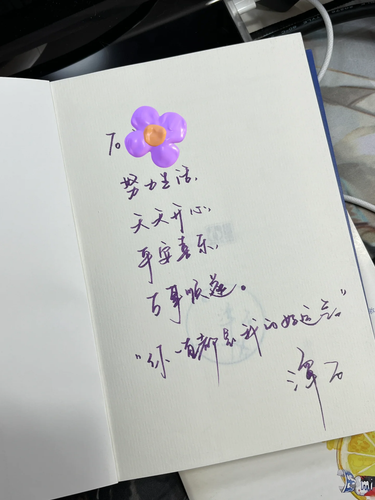 To
努力生活,
天天开心,
平安喜乐,
万事顺遂。
"你一直都是我的好运气。"
浑石
mi